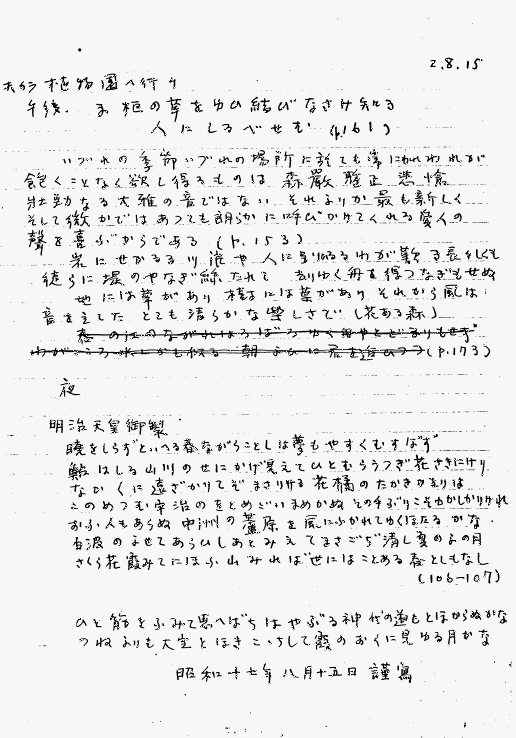 2.8.15
植物園へ行く
午後. お柩の草をゆひ結びなさけ知る
人にしるべせむ (p.161)
いづれの季節いづれの場所に於ても常にわれわれが
飽くことなく欲し得るものは 森厳 壮 悲愴
壮動なる大雅の音ではない それよりか最も新しく
そして微かではあつても朗らかに呼びかけてくれる愛人の
聲を喜ぶからである (p.153)
岩にせかるる川液や人に るわが歎 も
徒らに堤のやなぎ絲たれて ゆく舟を得つなぎもせぬ
地には草があり 樹には葉があり それから風は
音を立てた とても清らかな寂しさで (花ある森)
春の江のながれはろばろ
わがこころ 似る 朝 に君を (p.173)
夜
明治天皇御製
暁をしらずといへる春ながらことしは夢もやすくむすばず
鮎はしる山川のせにかげ見えてひとむらうつぎ花さきにけり
なか くに遠ざかりてぞまさりける 花橘のたかきかをりは
このめつむ宇治のをとめごいまめかぬその手ぶりこそゆかしかりけれ
おふ人もあらぬ中洲の蘆原を風にふかれてゆくほたるかな
白波のよせてあらひしあとみえてまさごぢ清し夏のよの月
さくら花霞みてにほふ山みれば世にはことある春としもなし
(106-107)
ひと筋をふみて思へばちはやぶる神代の道もとほからぬかな
つねよりも大空とほきここちして霞のおくに見ゆる月かな
昭和十七年八月十五日 謹寫